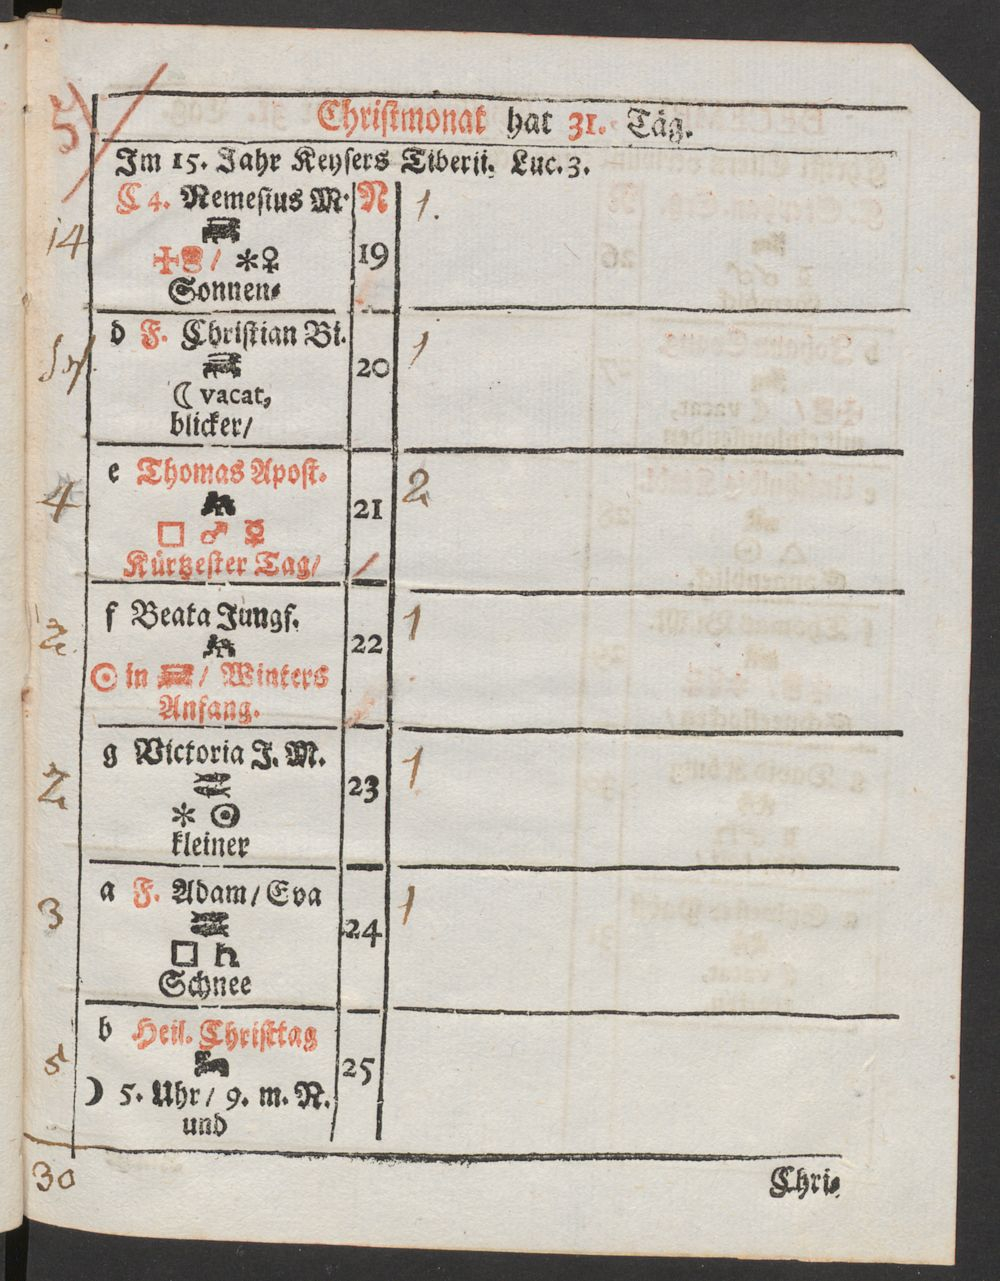 Christmonat hat 31. Täg.
Im 15. Jahr Keysers Tiberii. Luc. 3.
C 4. Nemesius M. N 1.
14
/ ⚹♀ 19
Sonnen⸗
d F. Christian Bi. 1
20
☾ vacat,
blicker/
e Thomas Apost. 2
4 21
□ ♂ ☿
Kürtzester Tag/
f Beata Jungf. 1
2. 22
☉ in ♒/ Winters
Anfang.
g Victoria J. M. 1
2 ♓ 23
⚹ ☉
kleiner
a F. Adam/ Eva 1
3 ♓ 24
□ ♄
Schnee
b Heil. Christtag
5 25
☽ 5. Uhr/ 9. m. N.
und
30
Chri⸗